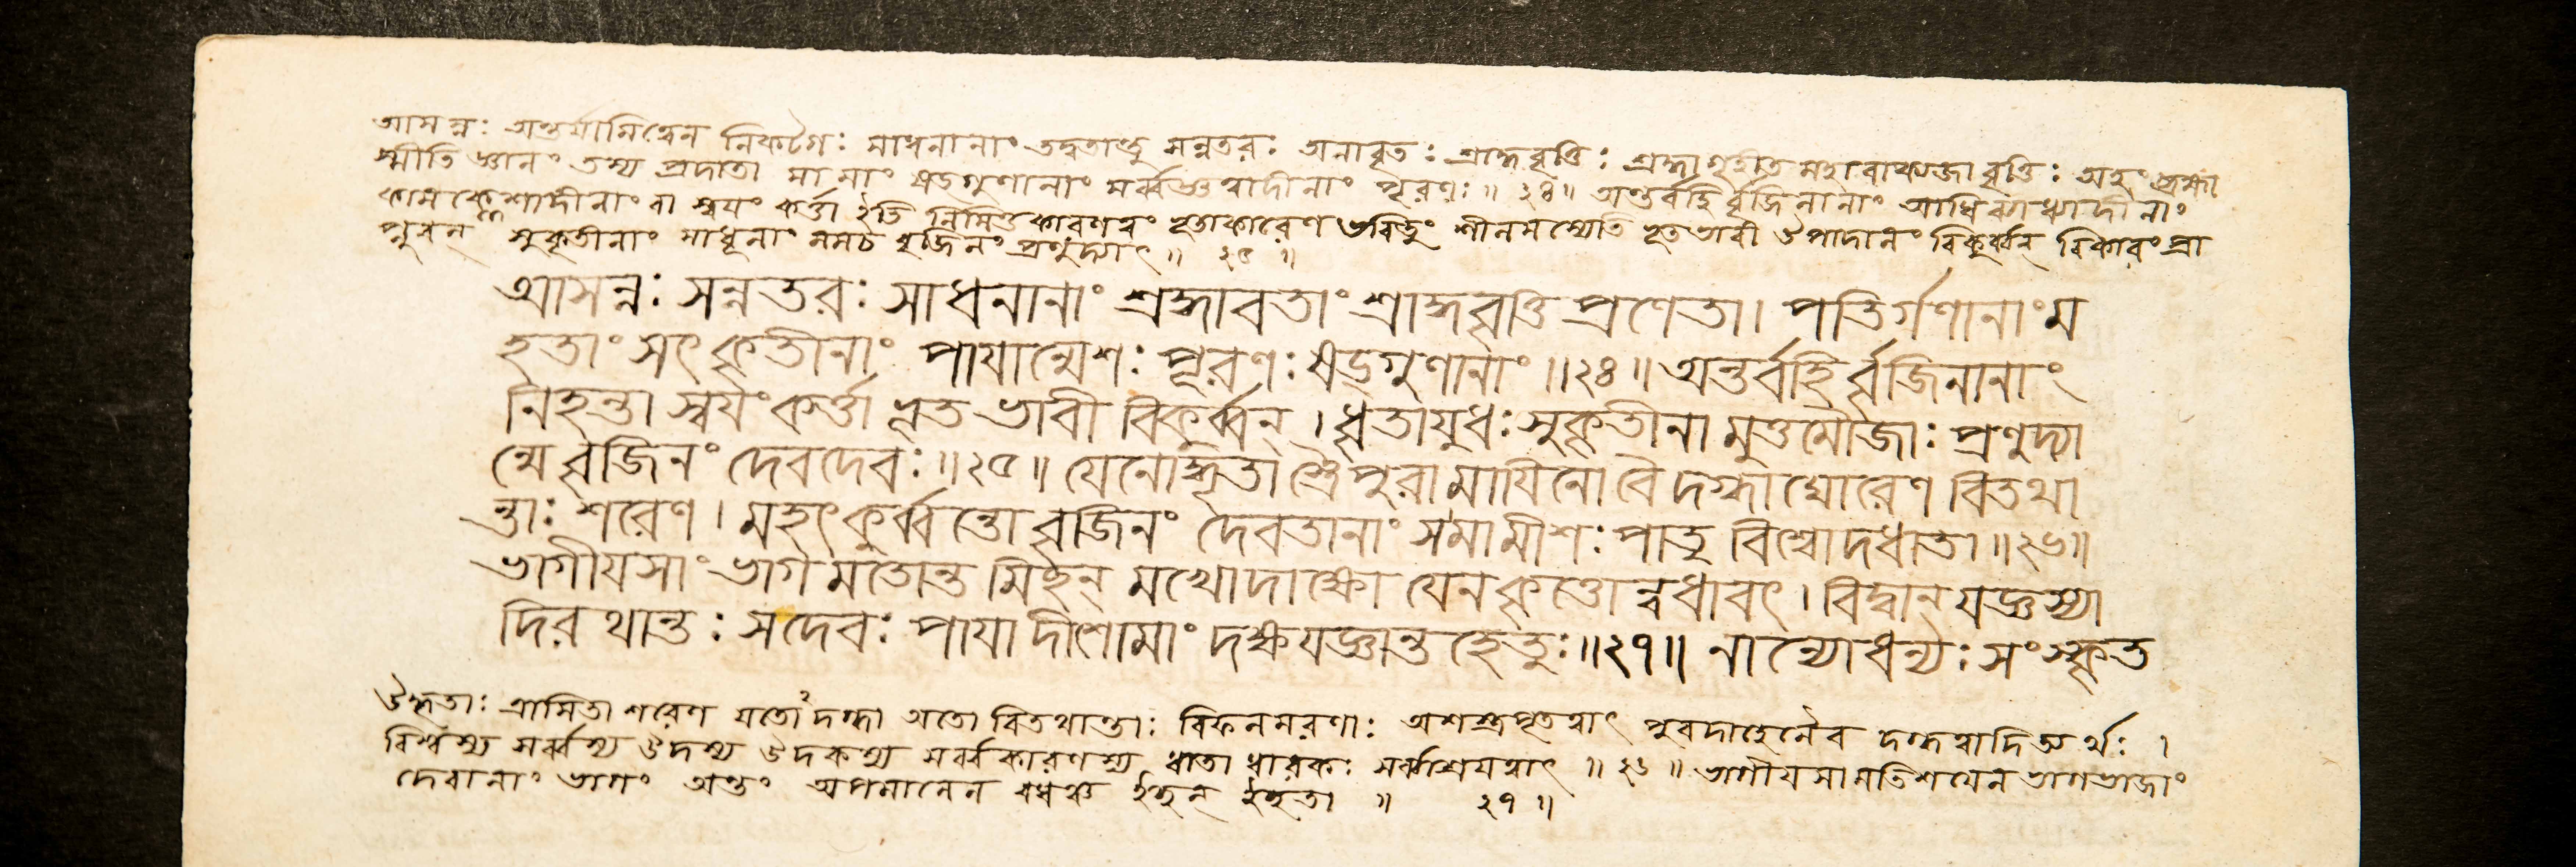 আসন্নঃ অন্তর্যামিত্বেন নিকটৈঃ সাধনানাং তদ্বতাম্ভু সন্নতরঃ অনাবৃতঃ শ্রাদ্ধেবৃত্তিঃ শ্রদ্ধাগৃহীত মহাবাক্যজা বৃত্তিঃ অহং ব্রহ্মা
স্মীতি জ্ঞানং তস্য প্রদাতা মা মাং ষড্গুণানাং সর্ব্বজ্ঞত্বাদীনাং পূরণঃ ॥ ২৪ ॥ অন্তর্বহি র্বৃজিনানাং আধিব্যাধ্যাদীনাং
কামক্লেশাদীনাং বা স্বয়ং কর্ত্তা ইতি নিমিত্তকারণত্বং ভূতাকারেণ ভবিতুং শীলমস্যেতি ভূতভাবী উপাদানং বিকুর্ব্বন্ বিকারং প্রা
প্নুবন্ সুকৃতীনাং সাধূনাং মমচ বৃজিনং প্রণুদ্যাৎ ॥ ২৫ ॥
আসন্নঃ সন্নতরঃ সাধনানাং শ্রদ্ধাবতাং শ্রাদ্ধবৃত্তি প্রণেতা। পতির্গণানাং ম
হতাং সৎকৃতীনাং পাযান্মেশঃ পূরণঃ ষড্গুণানাং ॥২৪॥ অন্তর্বহি র্বৃজিনানাং
নিহন্তা স্বয়ং কর্ত্তা ভূত ভাবী বিকুর্ব্বন্ । ধৃতাযুধঃ সুকৃতীনা মুত্তমৌজাঃ প্রণুদ্যা
ন্মে বৃজিনং দেবদেবঃ ॥২৫॥ যেনোদ্ধৃতা স্ত্রৈপুরা মাযিনো বৈ দগ্ধা ঘোরেণ বিতথা
ন্তাঃ শরেণ । মহৎ কুর্ব্বন্তো বৃজিনং দেবতানাং সমামীশঃ পাতু বিশ্বোদধাতা ॥২৬॥
ভাগীযসাং ভাগ মতোন্ত মিহন্ মখোদাক্ষো যেন কৃত্তোন্বধাবৎ । বিদ্বান্ যজ্ঞস্যা
দির থান্তঃ সদেবঃ পাযা দীশোমাং দক্ষযজ্ঞান্ত হেতুঃ ॥২৭॥ নান্যোধন্যঃ সংস্কৃত
উদ্ধৃতাঃ ত্রাসিতা শরেণ যতো দগ্ধা অতো বিতথান্তাঃ বিফলমরণাঃ অশস্ত্রপূতত্বাৎ পুরদাহেনৈব দগ্ধত্বাদি অর্থঃ ।
বিশ্বস্য সর্ব্বস্য উদস্য উদকস্য সর্ব্বকারণস্য ধাতা ধারকঃ সর্ব্বাশ্রযত্বাৎ ॥ ২৬ ॥ ভাগীযসামতিশযেন ভাগভাজাং
দেবানাং ভাগং অন্তং অপমানেন বধঞ্চ ঈহন্ ঈহতা ॥ ২৭ ॥